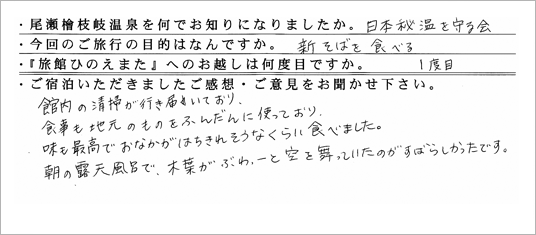 ・尾瀬檜枝岐温泉を何でお知りになりましたか。日本秘湯を守る会
・今回のご旅行の目的はなんですか。新そばを食べる
・『旅館ひのえまた』へのお越しは何度目ですか。1度目
・ご宿泊いただきましたご感想・ご意見をお聞かせ下さい。
館内の清掃が行き届いており、
食事も地元のものをふんだんに使っており、
味も最高でおなかがはちきれそうなくらい食べました。
朝の露天風呂で、木葉がぶわぁーと空を舞っていたのがすばらしかったです。